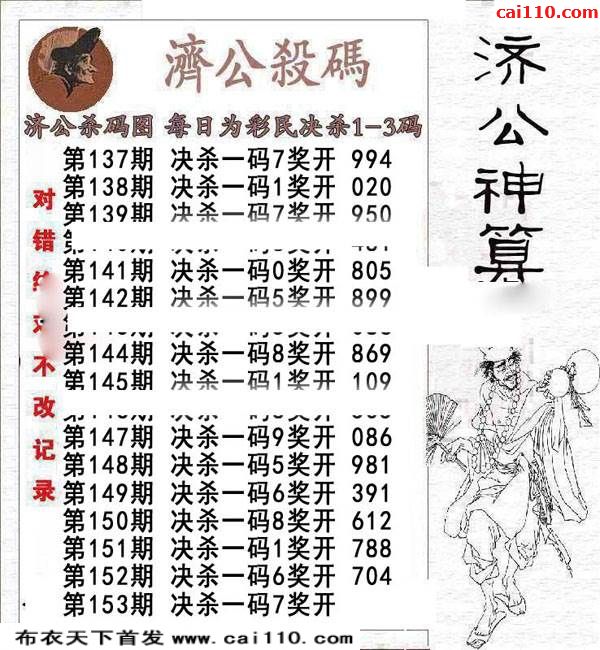 cai110.com
濟公殺碼
济公神算
济公杀码图 每日为彩民决杀1-3码
第137期 决杀一码7奖开 994
第138期 决杀一码1奖开 020
第139期 决杀一码7奖开 950
第141期 决杀一码0奖开 805
第142期 决杀一码5奖开 899
第144期 决杀一码8奖开 869
第145期 决杀一码1奖开 109
第147期 决杀一码9奖开 086
第148期 决杀一码5奖开 981
第149期 决杀一码6奖开 391
第150期 决杀一码8奖开 612
第151期 决杀一码1奖开 788
第152期 决杀一码6奖开 704
第153期 决杀一码7奖开
对错 不改记录
布衣天下首发 www.cai110.com